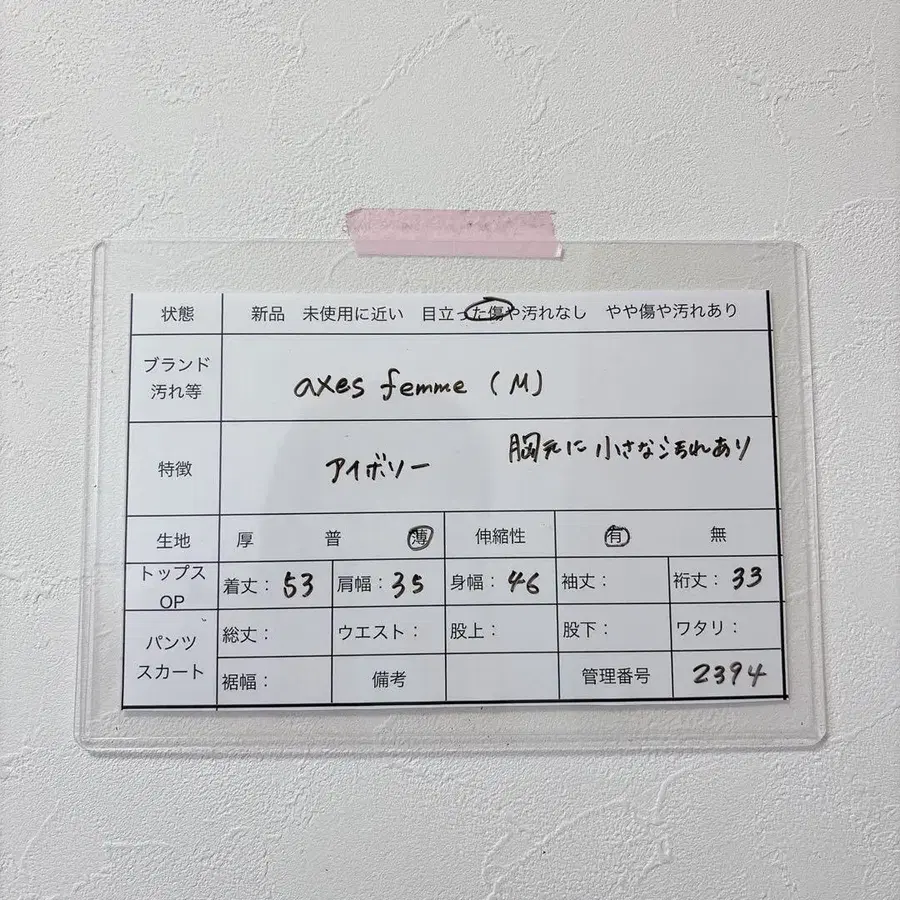 状態 新品 未使用に近い 目立った傷や汚れなし やや傷や汚れあり
ブランド
汚れ等
axes femme (M)
特徴 アイボリー 胸元に小さな汚れあり
生地 厚 普 薄 伸縮性 有 無
トップス
OP
着丈: 53 肩幅: 35 身幅: 46 袖丈: 裄丈: 33
パンツ
スカート
総丈: ウエスト: 股上: 股下: ワタリ:
裾幅: 備考 管理番号 2394